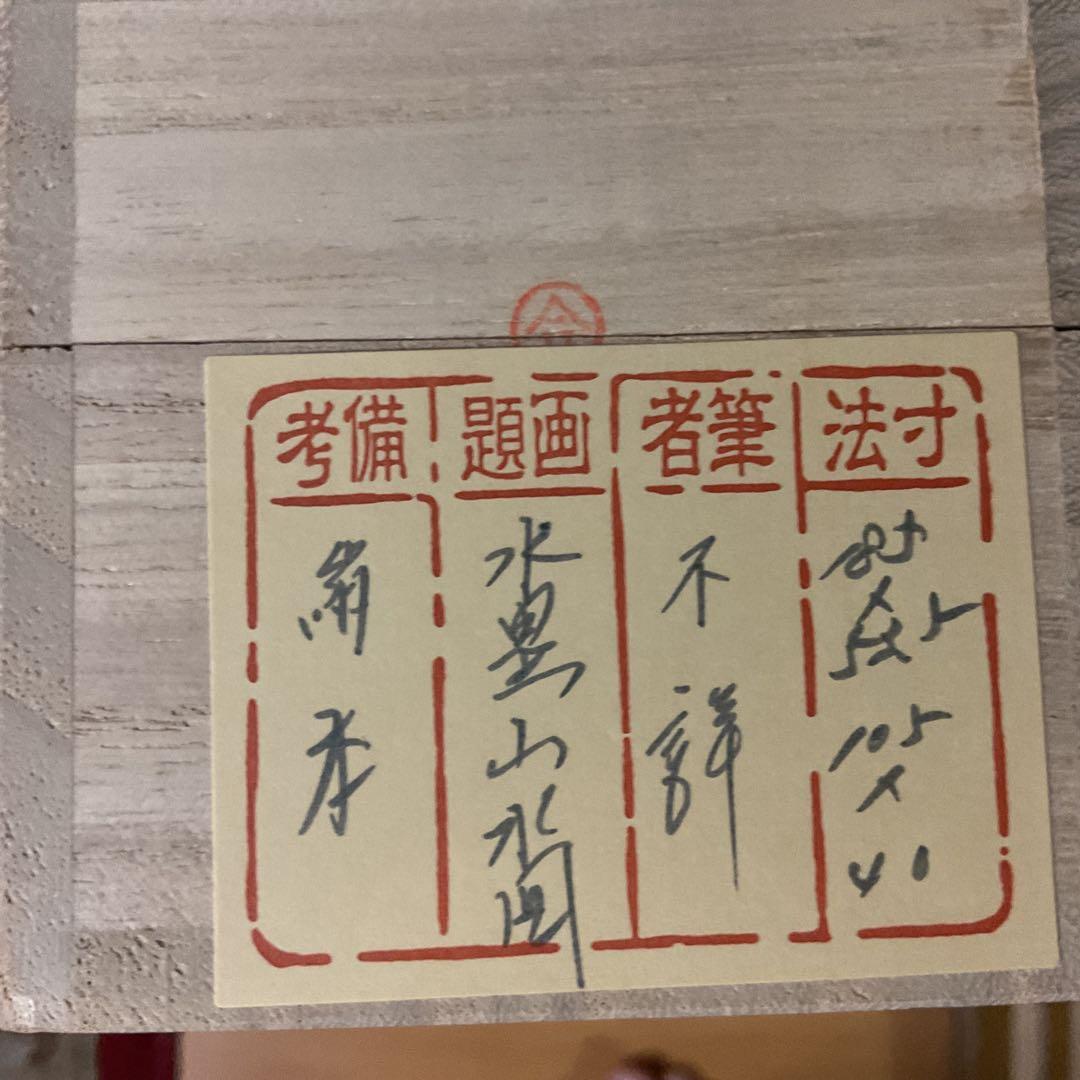 寸法
185
×
105
×
40
筆者
不詳
画題
水墨山水図
備考
絹本